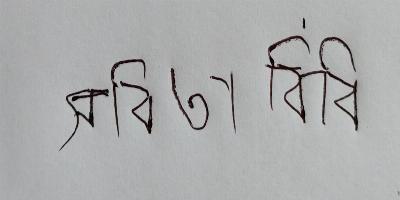 সবিতা বিবি